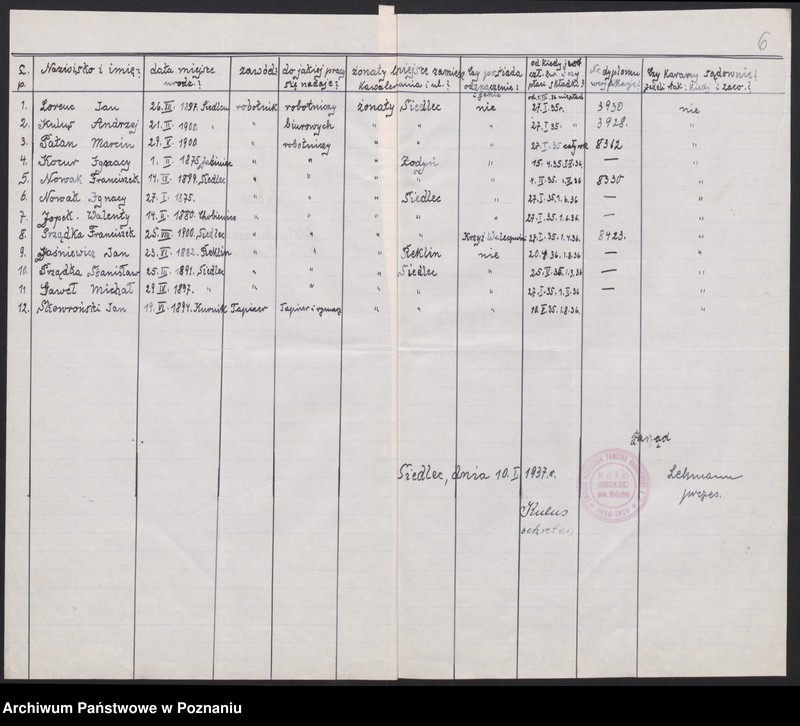 6
L.p. Nazwisko i imię? data miejsce urodz.? zawód? do jakiej pracy się nadaje? żonaty miejsce zamiesz. Kawaler czy posiada odznaczenie i od kiedy jest czł. zw. i czy płaci składki? Nr dyplomu czy karany sądownie? jeżeli tak: kiedy i zaco.?
1. Lorenc Jan 1897. Siedlec robotnik robotniczy żonaty Siedlec nie 27.I.35r. 3930 nie
2. Kuluś Andrzej 21. II. 1900. " " biurowych " " " 27.I.35. " 3928. "
3. Ratan Marcin 1900 " robotniczy " " " 27.I.35 cały rok 8362 "
4. Kozur Ignacy 1. II. 1875, " " " Żodyń " 15.4.35. — "
5. Nowak Franciszek 1899, Siedlec " " " " " 8330 "
6. Nowak Ignacy 27. I. 1875. " " " Siedlec " 27.I.35.1.6.36 — "
7. Jopek Walenty 14. II. 1880. Chobienice " " " " " 27.I.35.1.6.36. — "
8. Prządka Franciszek 25. VIII. 1900, Siedlec " " " " Krzyż Walecznych 27.I.35.1.4.36. 8423. "
9. Jaśniewicz Jan 23. VI. 1882. Reklin " " " Reklin nie 1.8.36 — "
10. Prządka Stanisław 25. III. 1891. Siedlec " " " Siedlec " 1.3.36 — "
11 Gaweł Michał 29. IX. 1897. " " " " " " 27.I.35.1.II.36 — "
12. Skowroński Jan 19. VI. 1894. Kurnik Tapicer Tapicer i rymarz " " " 10.II.35.1.8.36. "
Zarząd
Siedlec, dnia 10. I 1937.r.
KOŁO
SIEDLEC
Lehmann
prezes.
Kulus
sekretarz
Archiwum Państwowe w Poznaniu